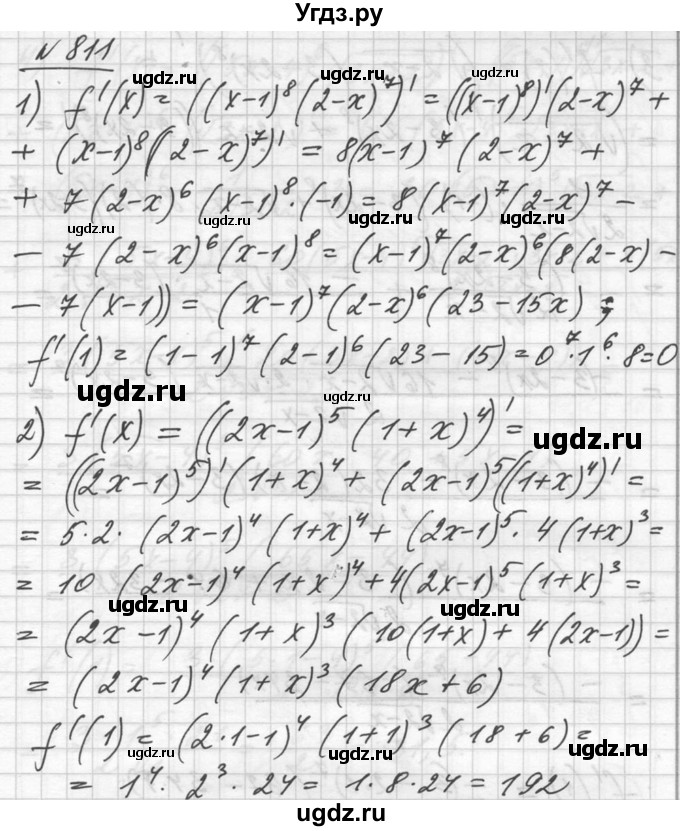 Угдз.ру
N 811
ugdz.ru
ugdz.ru ugdz.ru
1) f'(x) = ((x-1)⁸(2-x)⁷)' = ((x-1)⁸)'(2-x)⁷ +
ugdz.ru
+ (x-1)⁸((2-x)⁷)' = 8(x-1)⁷(2-x)⁷ +
+ 7(2-x)⁶(x-1)⁸·(-1) = 8(x-1)⁷(2-x)⁷ -
ugdz.ru ugdz.ru
- 7(2-x)⁶(x-1)⁸ = (x-1)⁷(2-x)⁶(8(2-x) -
ugdz.ru
- 7(x-1)) = (x-1)⁷(2-x)⁶(23-15x) ;
f'(1) = (1-1)⁷(2-1)⁶(23-15) = 0⁷·1⁶·8=0
ugdz.ru ugdz.ru ugdz.ru
2) f'(x) = ((2x-1)⁵(1+x)⁴)' =
ugdz.ru
= ((2x-1)⁵)'(1+x)⁴ + (2x-1)⁵((1+x)⁴)' =
= 5·2·(2x-1)⁴(1+x)⁴ + (2x-1)⁵·4(1+x)³ =
= 10 (2x-1)⁴(1+x)⁴ + 4(2x-1)⁵(1+x)³ =
ugdz.ru ugdz.ru
= (2x-1)⁴(1+x)³(10(1+x) + 4(2x-1)) =
= (2x-1)⁴(1+x)³(18x+6)
ugdz.ru ugdz.ru
f'(1) = (2·1-1)⁴(1+1)³(18+6) =
ugdz.ru ugdz.ru ugdz.ru
= 1⁴·2³·24 = 1·8·24 = 192
ugdz.ru